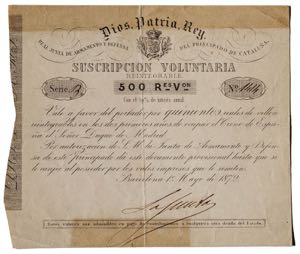 Dios, Patria, Rey.
REAL JUNTA DE ARMAMENTO Y DEFENSA DEL PRINCIPADO DE CATALUÑA.
SUSCRIPCION VOLUNTARIA
REINTEGRABLE
Serie
500 Rs Von
No
Vale a favor del portador por quinientos reales de vellon
reintegrables en los dos primeros años de ocupar el Trono de Espa-
ña el Señor Duque de Madrid.
Por autorizacion de S.M. la Junta de Armamento y Defen-
sa de este Principado da este documento provisional hasta que se
le canjee al poseedor por los valores impresos que le
Barcelona 1º Mayo de 1872.
La Junta
Estos valores son admisibles en pago de contribuciones ó cualquiera otra deuda del Estado.